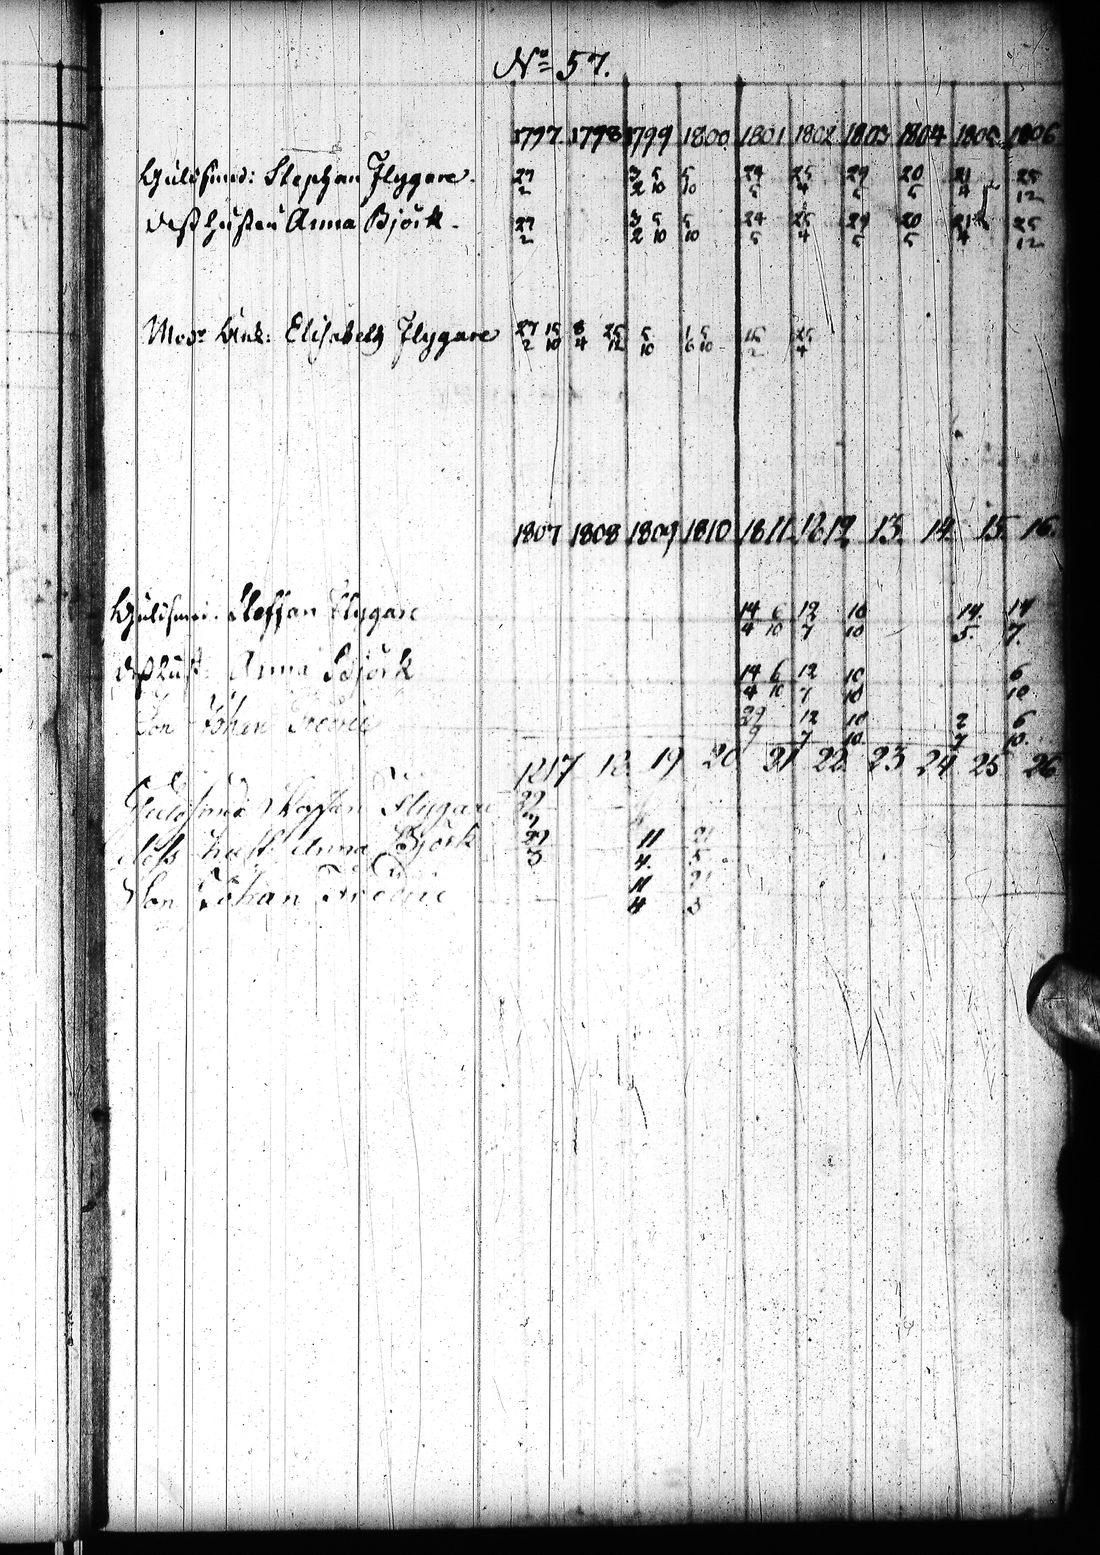 No 57.
1797 1798 1799 1800 1801 1802 1803 1804 1805 1806
Guldsmed: Stephan Flygare. 27 3 5 5 24 25 29 20 21 25
2 2 10 10 5 4 5 5 4 12
dess hustru Anna Björk. 27 3 5 5 24 25 29 20 21 25
2 2 10 10 5 4 5 5 4 12
Elisabeth Flygare 27 15 8 25 5 1 5 15 25
2 10 4 12 10 6 10 2 4
1807 1808 1809 1810 1811 1812 13 14 15 16.
Guldsmed. Steffan Flygare 14 6 12 10 14 14
4 10 7 10 5 7.
dess hust: Anna Björk 14 6 12 10 6
4 10 7 10 10
Son Johan Fredric 29 12 10 2 6
9 7 10 7 10.
1817 18 19 20 21 22 23 24 25 26
Guldsmed Staffan Flygare 29
7
dess hust: Anna Björk 29 11 21
3 4. 3
Son Johan Fredric 11 21
4 3